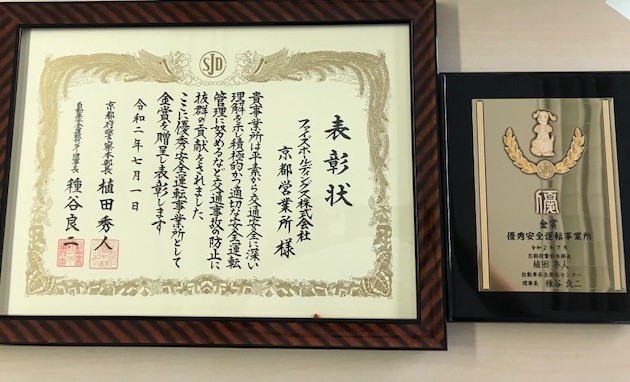 SJD
表彰状
ファイズホールディングス株式会社
京都営業所 様
貴事業所は平素から交通安全に深い
理解を示し積極的かつ適切な安全運転
管理に努めるなど交通事故の防止に
抜群の貢献をされました
ここに優秀安全運転事業所として
金賞を贈呈し表彰します
令和二年七月一日
京都府警察本部長 植田秀人
自動車安全運転センター理事長 種谷良二
SJD
優
金賞
優秀安全運転事業所
令和2年7月
京都府警察本部長
植田 秀人
自動車安全運転センター
理事長 種谷 良二